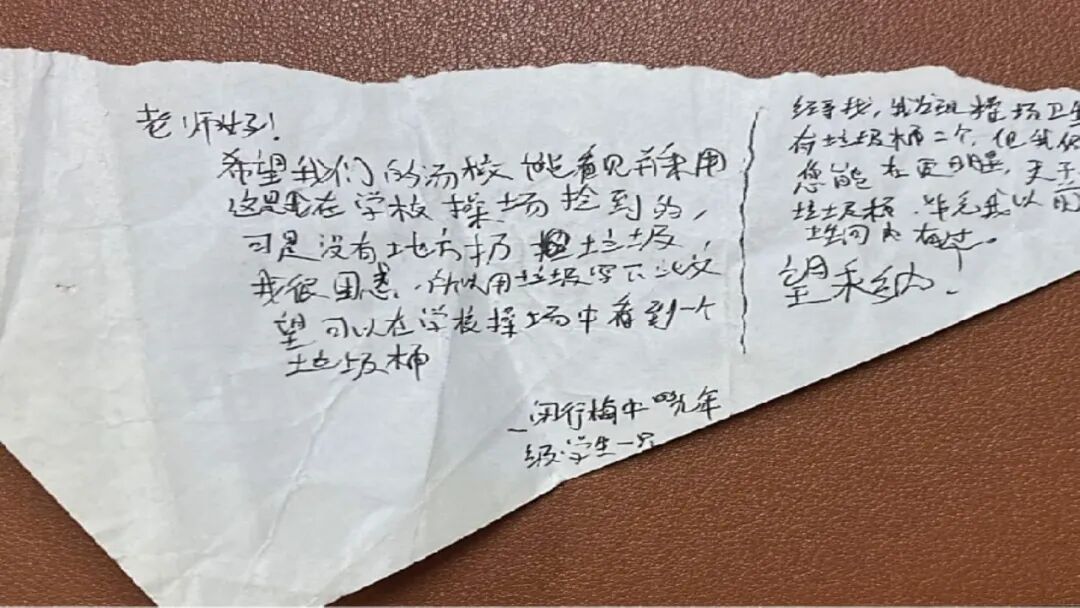 老师好!
希望我们的汤校 能看见并采用
这是我在学校操场捡到的,
可是没有地方扔 垃圾,
我很困惑. 所以用垃圾写下此文
望可以在学校操场中看到一个
垃圾桶
闵行梅中 九年
级学生一只
经寻找,我发现操场卫生
有垃圾桶二个,但我仍
您能在更明显,更于
垃圾桶.毕竟我以前
有过.
望采纳.